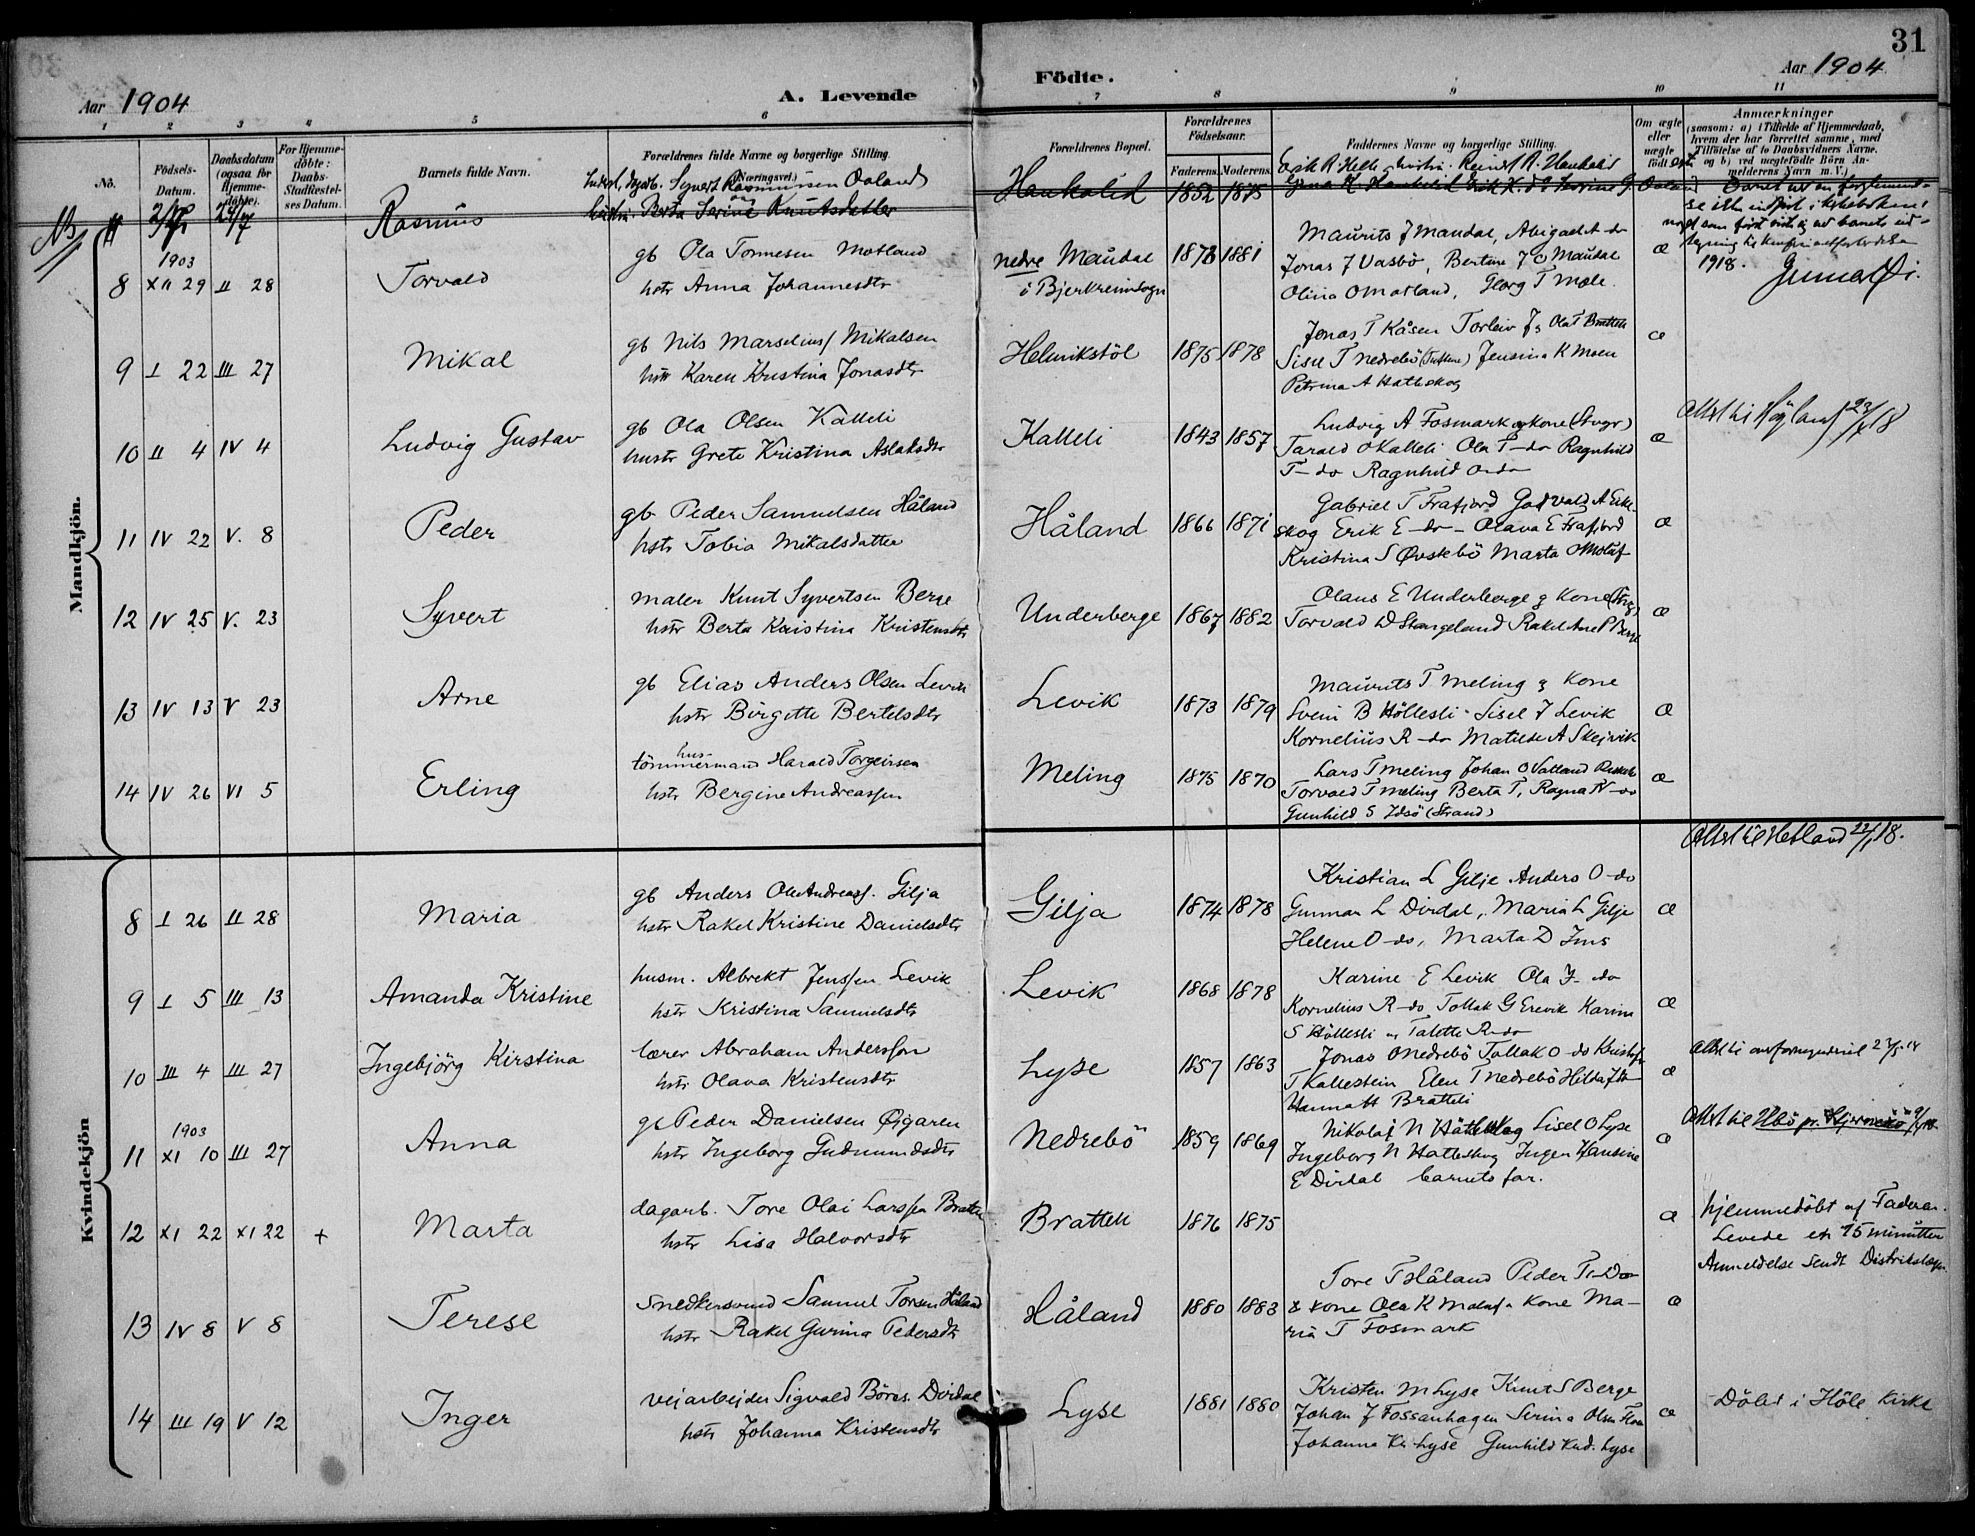 31
Aar 1904
A. Levende
Födte.
Aar 1904
1 2 3 4 5 6 7 8 9 10 11
No.
Födsels-Datum.
Daabsdatum (ogsaa for Hjemme-döbte).
For Hjemme-döbte: Daabs-Stadfæstel-ses Datum.
Barnets fulde Navn.
Forældrenes fulde Navne og borgerlige Stilling. (Næringsvei.)
Forældrenes Bopæl.
Forældrenes Födselsaar.
Faderens. Moderens.
Faddernes Navne og borgerlige Stilling.
Om ægte eller uægte født
Anmærkninger
(saasom: a) i Tilfælde af Hjemmedaab, hvem der har forrettet samme, med Tilföielse af to Daabsvidners Navne, og b) ved uægtefödte Börn An-melderens Navn m. V.)
Rasmus
Syvert Rasmussen Oaland
Berta Serine Knutsdatter
Haukalid 1852 1875
1918.
Mandkjön.
8 1903 XII 29 II 28 Torvald
gb Ola Tonnesen Motland
hstr Anna Johannesdtr
nedre Maudal
i Bjerkreimsogn
1878 1881
Maurits J Maudal, Abigael A do
Jonas J Vasbö, Bertine J O Maudal
Olina O Motland, Georg T Mæle.
æ
9 I 22 III 27 Mikal
gb Nils Marselius Mikalsen
hstr Karen Kristina Jonasdtr
Helmikstöl 1875 1878
Jonas T Kåsen Torleiv J, Ola T Bratteli
Sisel T Nedrebö Jensina K Moen
Petrina A Hatleskog
æ
10 II 4 IV 4 Ludvig Gustav
gb Ola Olsen Kalleli
hustr Grete Kristina Aslaksdtr
Kalleli 1843 1857
Ludvig A Fosmark og kone
Tarald O Kalleli Ola T do Ragnhild
T do Ragnhild O do
æ
Attest til Högland 23/4 18
11 IV 22 V. 8 Peder
gb Peder Samuelsen Håland
hstr Tobia Mikalsdatter
Håland 1866 1871
Gabriel T Frafjord Godvald A Eike
skog Erik E do - Olava E Frafjord
Kristina S Øvstebö Marta O Molaf
æ
12 IV 25 V. 23 Syvert
maler Knut Syvertsen Berge
hstr Berta Kristina Kristensdtr
Underberge 1867 1882
Olaus E Underberge & Kone
Torvald D Stangeland Rakel Ane P Berge
æ
13 IV 13 V 23 Arne
gb Elias Anders Olsen Levik
hstr Birgitte Bertelsdtr
Levik 1873 1879
Maurits T Meling & Kone
Svein B Höllesli Sisel J Levik
Kornelius R do Matilde A Skejvik
æ
14 IV 26 VI 5 Erling
hus-
tömmermand Harald Torgeirsen
hstr Bergine Andreassen
Meling 1875 1870
Lars T Meling Johan O Vatland
Torvald T Meling Berta T, Ragna K do
Gunhild S Idsö (Strand)
æ
Attest til Hetland 22/1 18.
Kvindekjön
8 I 26 II 28 Maria
gb Anders Ole Andreass. Gilja
hstr Rakel Kristine Danielsdtr
Gilja 1874 1878
Kristian L Gilje Anders O do
Gunnar L Dirdal, Maria L Gilje
Helene O do, Marta D Ims
æ
9 I 5 III 13 Amanda Kristine
husm. Albrekt Jenssen Levik
hstr Kristina Samuelsdtr
Levik 1868 1878
Karine E Levik Ola J do
Kornelius R do Tollak G Erevik Karine
S Höllesli Talette R do
æ
10 III 4 III 27 Ingebjörg Kirstina
lærer Abraham Anderssen
hstr Olava Kristensdtr
Lyse 1857 1863
Jonas O Nedrebö Tollak O do
T Kallestein Elen T Nedrebö
Hanna H Bratteli
æ
11 1903 XI 10 III 27 Anna
Peder Danielsen Øigaren
hstr Ingeborg Gudmundsdtr
Nedrebö 1859 1869
Nikolaj N Hatleskog Sisel O Lyse
Ingeborg N Hatleskog Inger Hansine
E Dirdal barnets far.
æ
12 XI 22 XI 22 + Marta
dagarb. Tore Olai Larssen Bratteli
hstr Lisa Halvorsdtr
Bratteli 1876 1875
æ
hjemmedöbt af Faderen.
Levede et 15 minutter
Anmeldelse sendt Distriktslægen
13 IV 8 V 8 Terese
Snedkersvend Samuel Torsen Håland
hstr Rakel Gurina Pedersdtr
Håland 1880 1883
Tore T Håland Peder T do
& kone Ola K Molaf & kone Ma-
ria T Fosmark
æ
14 III 19 V 12 Inger
vejarbejder Sigvald Böres. Dirdal
hstr Johanna Kristensdtr
Lyse 1881 1880
Kristen M Lyse Knut S Berge
Johan J Fossanhagen Serina Olsen
Johanna Kr Lyse Gunhild Knd. Lyse
æ
Döbt i Höle Kirke